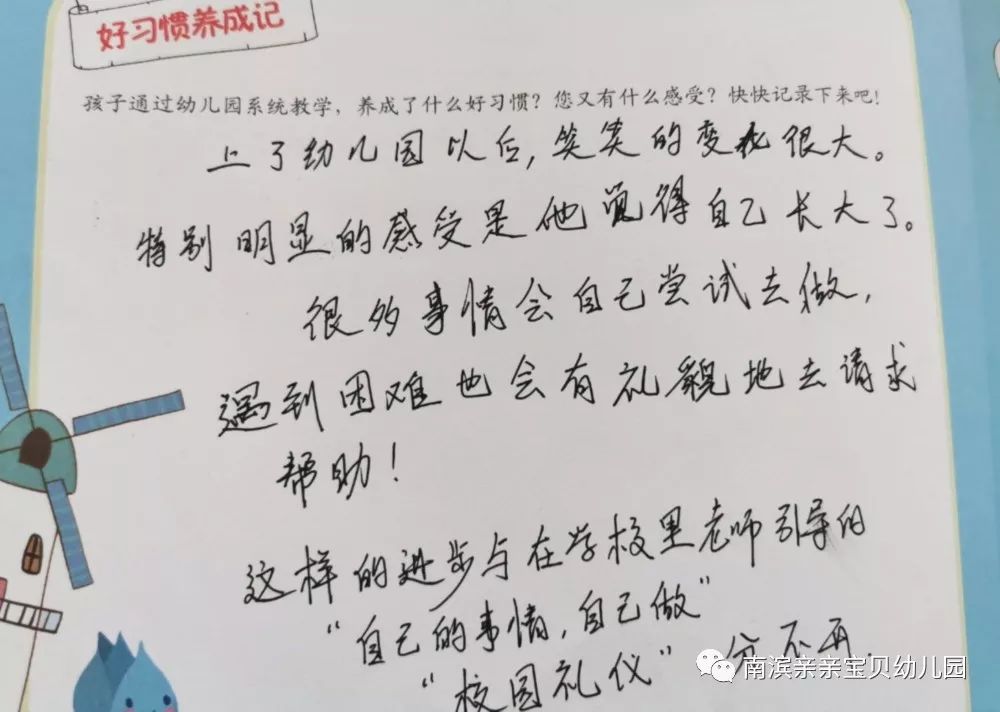 好习惯养成记
孩子通过幼儿园系统教学，养成了什么好习惯？您又有什么感受？快快记录下来吧！
上了幼儿园以后，笑笑的变化很大。
特别明显的感受是他觉得自己长大了。
很多事情会自己尝试去做，
遇到困难也会有礼貌地去请求
帮助！
这样的进步与在学校里老师引导的
“自己的事情，自己做”
“校园礼仪”分不开.
南滨亲亲宝贝幼儿园